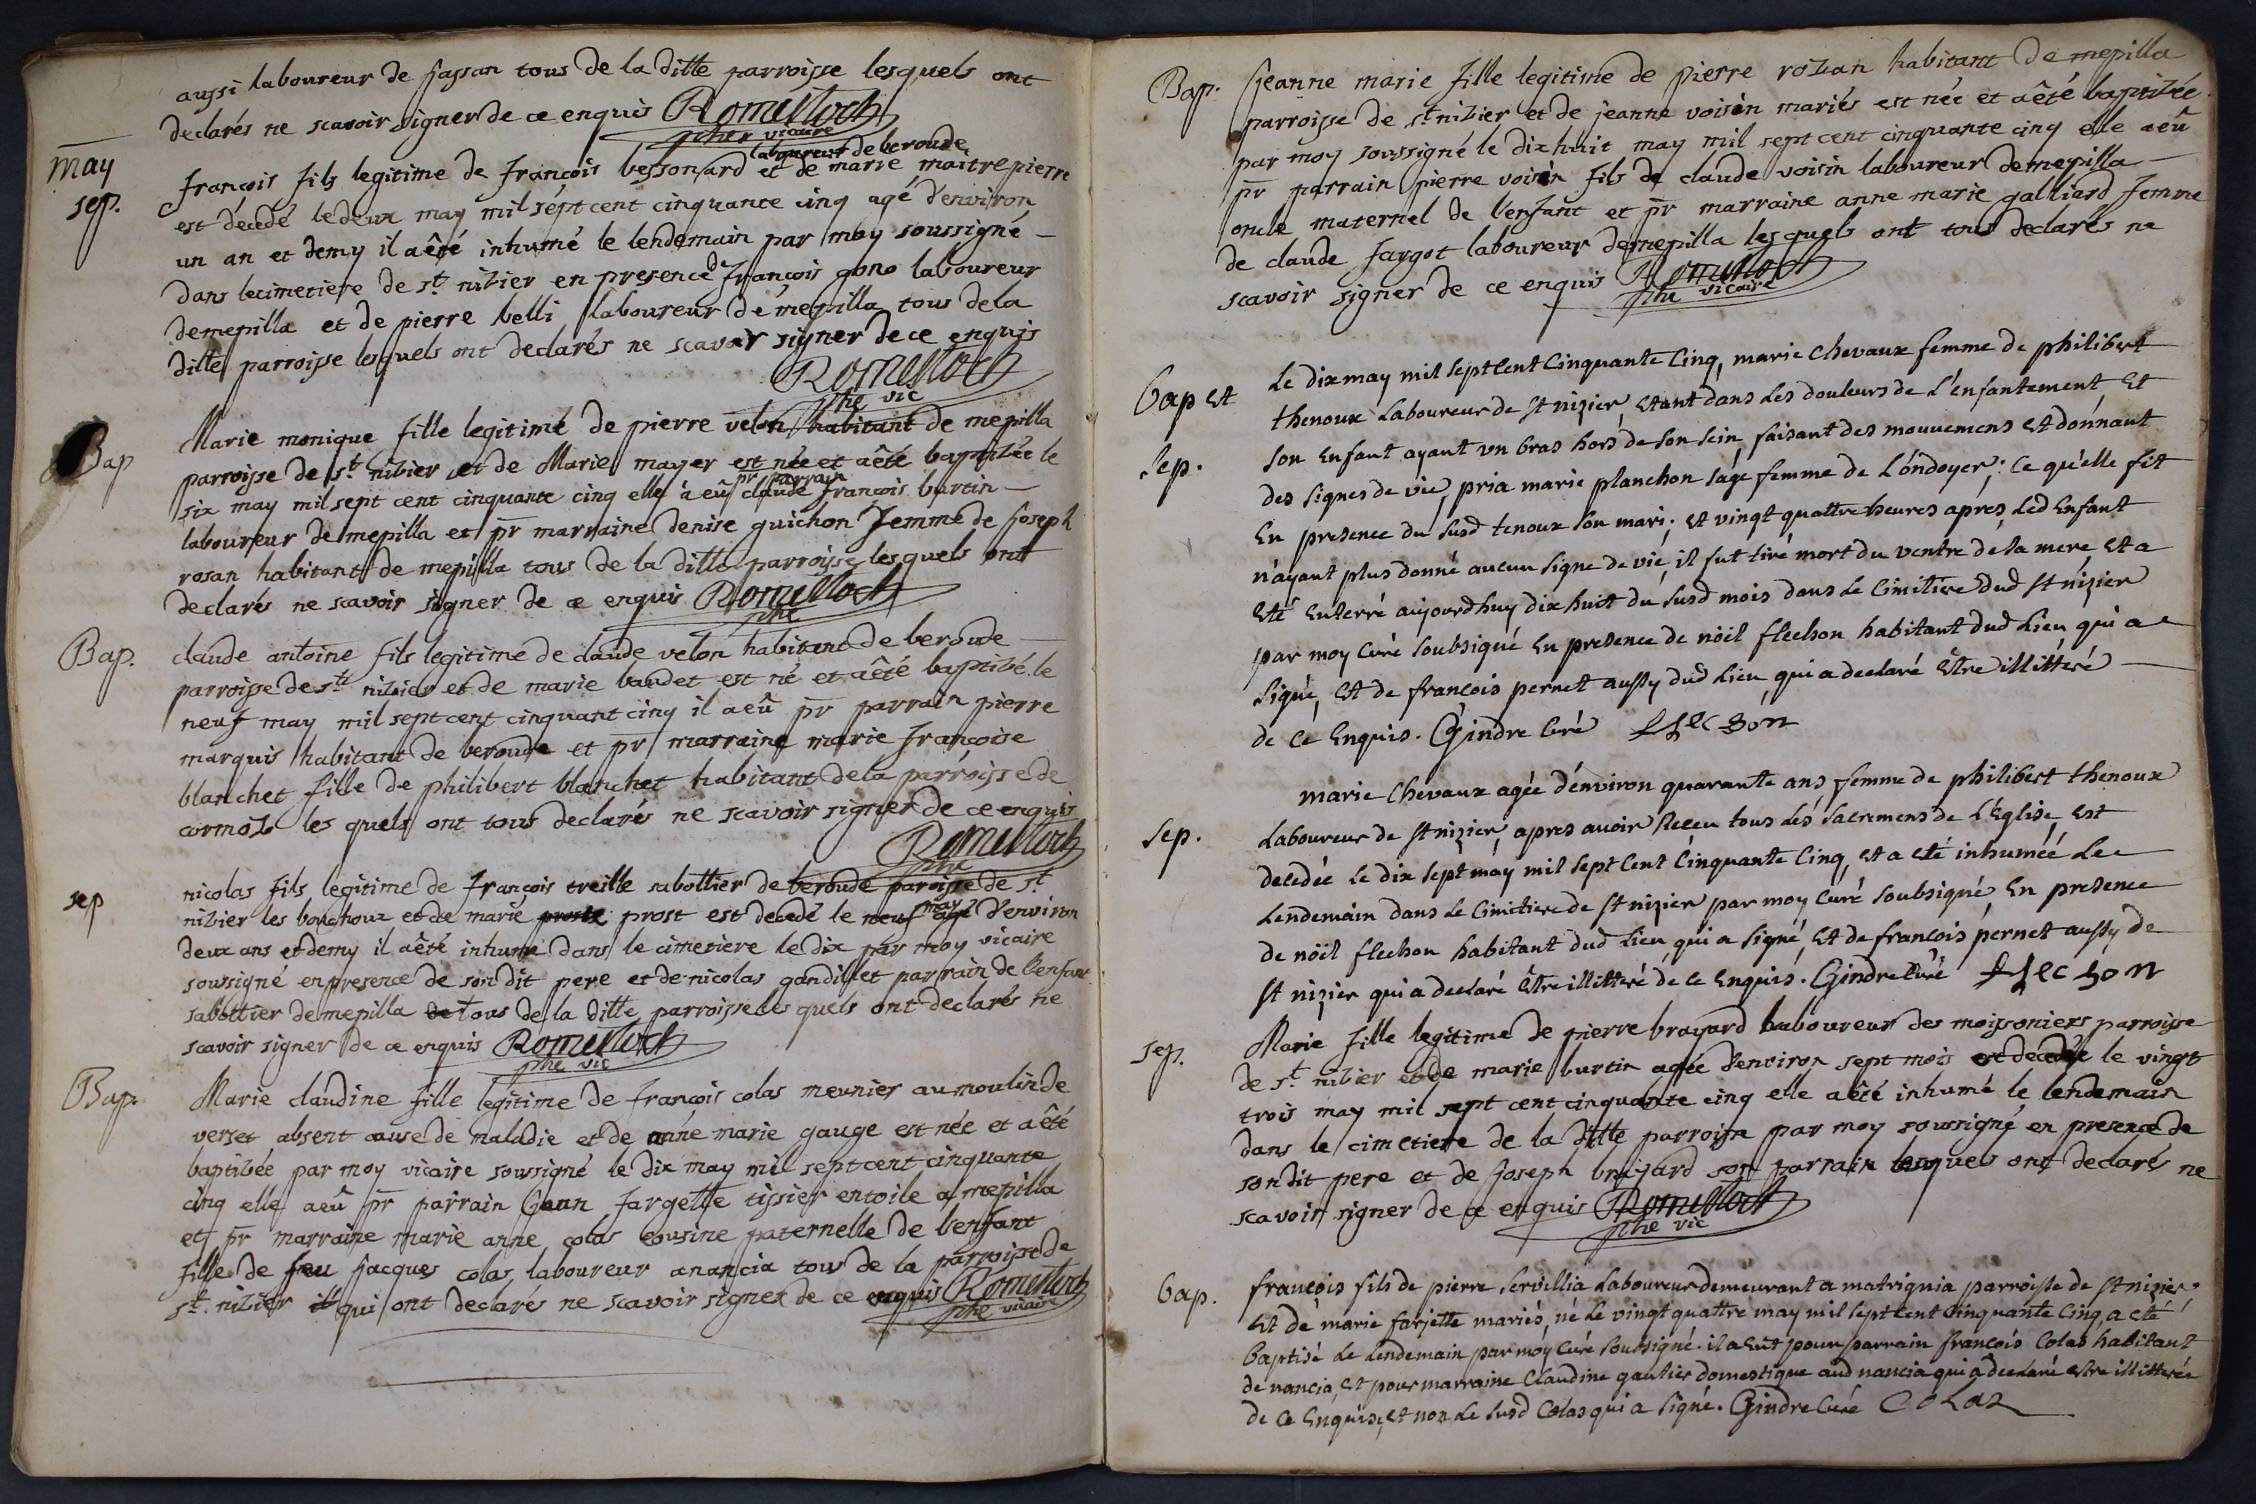 aussi laboureur de jassan tous de la ditte parroisse lesquels ont
declarés ne scavoir signer de ce enquis Romilloch
ptre vicaire
may
sep.
laboureur de beroude
françois fils legitime de françois bessonard et de marie maitrepierre
est décédé le deux may mil sept cent cinquante cinq agé d'environ
un an et demy il a êté inhumé le lendemain par moy soussigné
dans le cimetiere de st nibier en presence de françois gono laboureur
de mepilla et de pierre belli laboureur de mepilla tous de la
ditte parroisse lesquels ont declarés ne scavoir signer de ce enquis
Romilloch
ptre vic
Bap
Marie monique fille legitime de pierre velon habitant de mepilla
parroisse de st nibier et de Marie mayer est née et a êté baptibée le
pr parrain
six may mil sept cent cinquante cinq elle a eû claude françois burtin
laboureur de mepilla et pr marraine denise guichon femme de joseph
rosan habitant de mepilla tous de la ditte parroisse lesquels ont
declarés ne scavoir signer de ce enquis Romilloch
ptre
Bap.
claude antoine fils legitime de claude velon habitant de beroude
parroisse de st nibier et de marie baudet est né et a êté baptibé le
neuf may mil sept cent cinquant cinq il a eû pr parrain pierre
marquis habitant de beroude et pr marraine marie françoise
blanchet fille de philibert blanchet habitant de la parroisse de
cormoz les quels ont tous declarés ne scavoir signer de ce enquis
Romilloch
ptre
sep
nicolas fils legitime de françois treille sabottier de beroude paroisse de st
nibier les bouchoux et de marie prost est decedé le neuf may agé d'environ
deux ans et demy il a êté inhumé dans le cimetiere le dix par moy vicaire
soussigné en presence de son dit pere et de nicolas gandillet parrain de l'enfant
sabottier de mepilla tous de la ditte parroisse les quels ont declarés ne
scavoir signer de ce enquis Romilloch
ptre vic
Bap.
Marie claudine fille legitime de françois colas meunier au moulin de
verset absent cause de maladie et de anne marie gauge est née et a êté
baptibée par moy vicaire soussigné le dix may mil sept cent cinquante
cinq elle a eû pr parrain jean fargette tissier en toile a mepilla
et pr marraine marie anne colas cousine paternelle de l'enfant
fille de feu jacques colas laboureur a nancia tous de la parroisse de
st nibier qui ont declarés ne scavoir signer de ce enquis Romilloch
ptre vicaire
Bap.
jeanne marie fille legitime de pierre rozan habitant de mepilla
parroisse de st nibier et de jeanne voisin mariés est née et a êté baptibée
par moy soussigné le dix huit may mil sept cent cinquante cinq elle a eû
pr parrain pierre voisin fils de claude voisin laboureur de mepilla
oncle maternel de l'enfant et pr marraine anne marie galliard femme
de claude fargot laboureur de mepilla les quels ont tous declarés ne
scavoir signer de ce enquis Romilloch
ptre vicaire
bap et
sep.
Le dix may mil sept cent cinquante cinq, marie chevaux femme de philibert
thenoux Laboureur de st nizier, étant dans les douleurs de L'enfantement, et
son enfant ayant un bras hors de son sein, faisant des mouvemens et donnant
des signes de vie, pria marie planchon sage femme de L'ondoyer; ce qu'elle fit
en presence du susd tenoux son mari; et vingt quattre heures apres, led enfant
n'ayant plus donné aucun signe de vie, il fut tiré mort du ventre de sa mere, et a
eté enterré aujourdhuy dix huit du susd mois dans le cimitiere dud st nizier
par moy curé soubsigné en presence de nöil flechon habitant dud lieu qui a
signé, et de francois pernet aussy dud lieu, qui a declaré être illitteré
de ce enquis. Gindre curé flechon
sep.
marie chevaux agée d'environ quarante ans, femme de philibert thenoux
Laboureur de st nizier, apres avoir receu tous les sacremens de L'Eglise, est
decedée le dix sept may mil sept cent cinquante cinq, et a eté inhumée le
Lendemain dans le cimitiere de st nizier par moy curé soubsigné, en presence
de nöil flechon habitant dud lieu qui a signé, et de francois pernet aussy de
st nizier qui a declaré être illitteré de ce enquis. Gindre curé flechon
sep.
Marie fille legitime de pierre brayard laboureur des moissoniers parroisse
de st nibier et de marie burtin agée d'environ sept mois est decedée le vingt
trois may mil sept cent cinquante cinq elle a êté inhumé le lendemain
dans le cimetiere de la ditte parroisse par moy soussigné en presence de
son dit pere et de joseph brayard son parrain lesquels ont declarés ne
scavoir signer de ce enquis Romilloch
ptre vic
bap.
francois fils de pierre servillia Laboureur demeurant a matrignia parroisse de st nizier
et de marie farjette mariés, né le vingt quattre may mil sept cent cinquante cinq, a eté
baptisé le lendemain par moy curé soubsigné. il a eut pour parrain francois Colas habitant
de nancia, et pour marraine claudine gautier domestique aud nancia qui a declaré estre illitterée
de ce enquise, et non le susd Colas qui a signé. Gindre curé COLAS